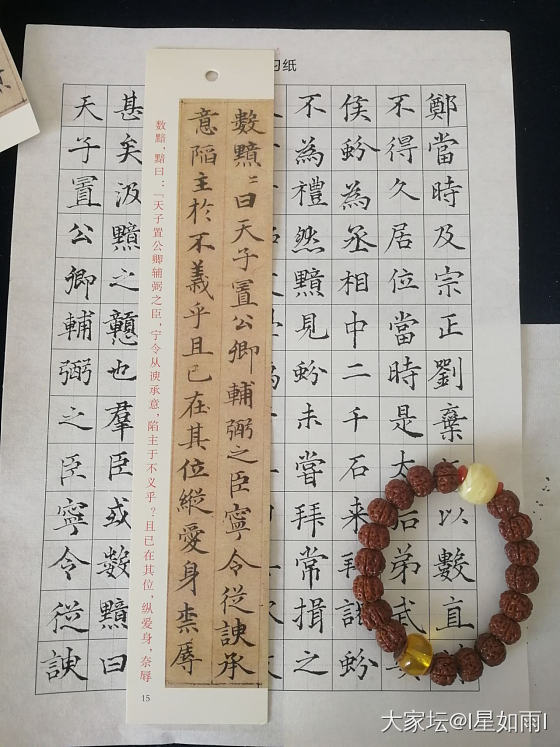 习纸
鄭當時及宗正劉棄以數直
不得久居位當時是太后弟武
侯蚡為丞相中二千石来拜謁蚡
不為禮然黯見蚡未嘗拜常揖之
數黯〻曰天子置公卿輔弼之臣寧令從諛承
意陷主於不義乎且已在其位縱愛身柰辱
数黯，黯曰：“天子置公卿辅弼之臣，宁令从谀承意，陷主于不义乎？且已在其位，纵爱身，奈辱
15
甚矣汲黯之戇也羣臣或數黯曰
天子置公卿輔弼之臣寧令從諛
大家坛@I星如雨I